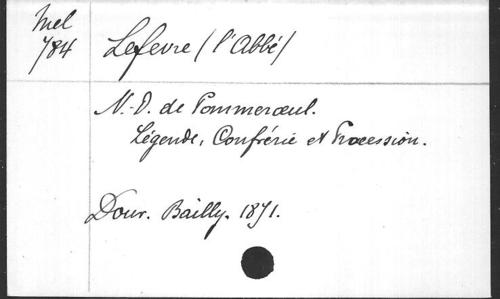 Mel
784
Lefevre (l'Abbé)
N.-D. de Pommeroeul.
Légende, Confrérie et Procession.
Dour. Bailly. 1871.